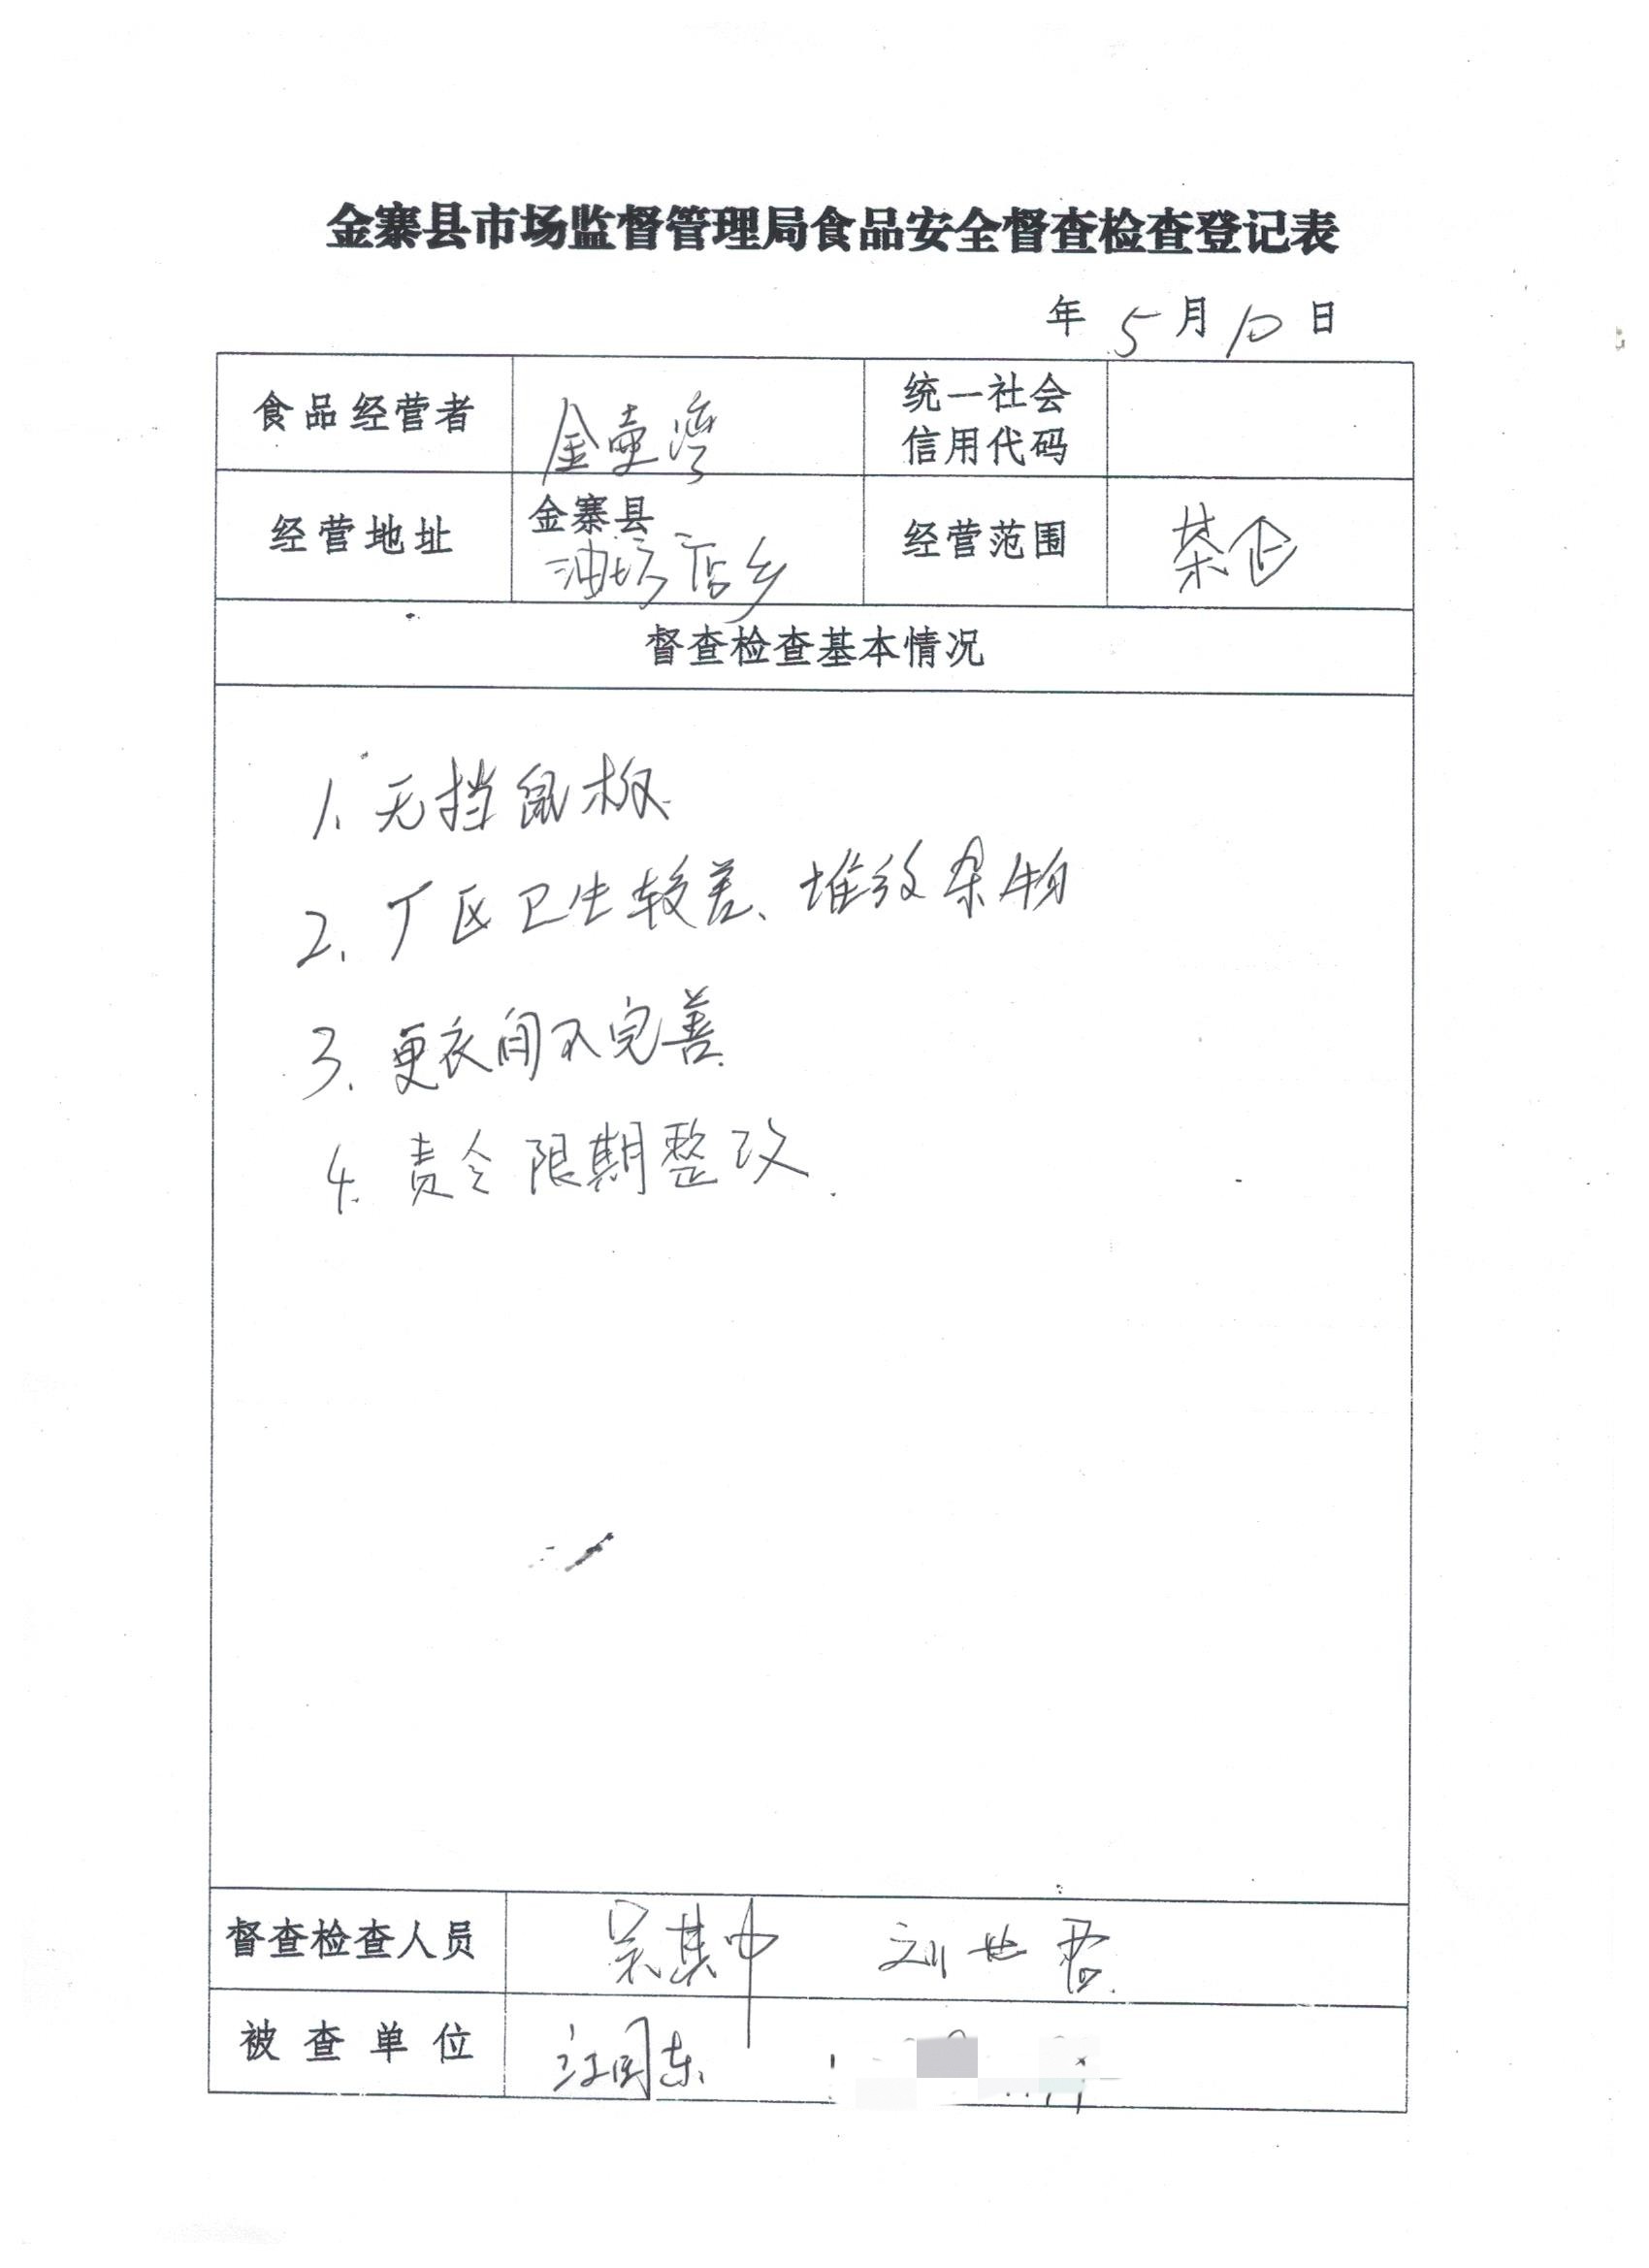 金寨县市场监督管理局食品安全督查检查登记表
年 5 月 10 日
食品经营者 金壶湾 统一社会信用代码
经营地址 金寨县油坊店乡 经营范围 茶企
督查检查基本情况
1、无挡鼠板.
2、厂区卫生较差、堆放杂物
3、更衣间不完善.
4、责令限期整改.
督查检查人员 吴其中 刘世君.
被查单位 汪国东